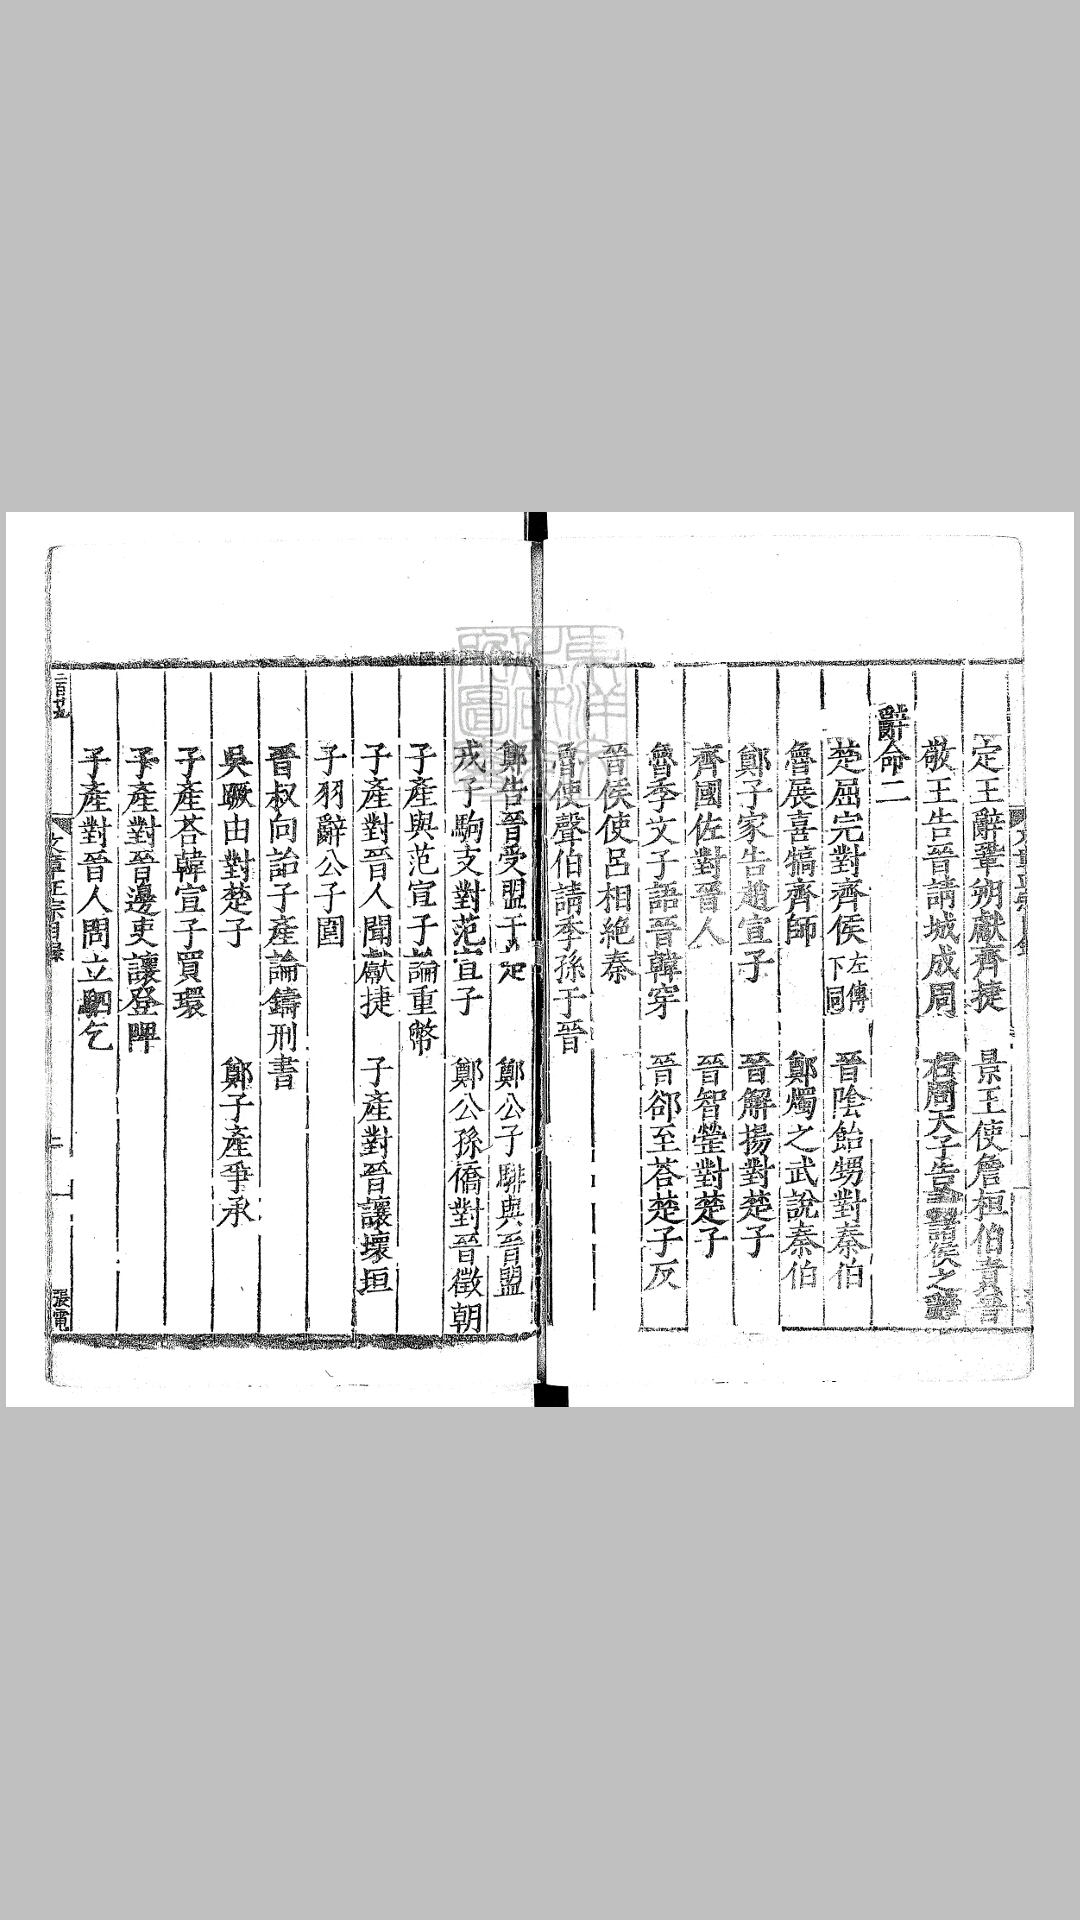 定王辭鞏朔獻齊捷　景王使詹桓伯責晉
敬王告晉請城成周　右周天子告諭諸侯之辭
辭命二
楚屈完對齊侯左傳下同　晉陰飴甥對秦伯
魯展喜犒齊師　鄭燭之武說秦伯
鄭子家告趙宣子　晉解揚對楚子
齊國佐對晉人　晉智罃對楚子
魯季文子語晉韓穿　晉郤至荅楚子反
晉侯使呂相絶秦
魯使聲伯請季孫于晉
鄭告晉受盟于楚　鄭公子騑與晉盟
戎子駒支對范宣子　鄭公孫僑對晉徵朝
子產與范宣子論重幣
子產對晉人問獻捷　子產對晉讓壞垣
子羽辭公子圍
晉叔向詒子產論鑄刑書
吳蹶由對楚子　鄭子產爭承
子產荅韓宣子買環
子產對晉邊吏讓登陴
子產對晉人問立駟乞
文章正宗目錄
張電